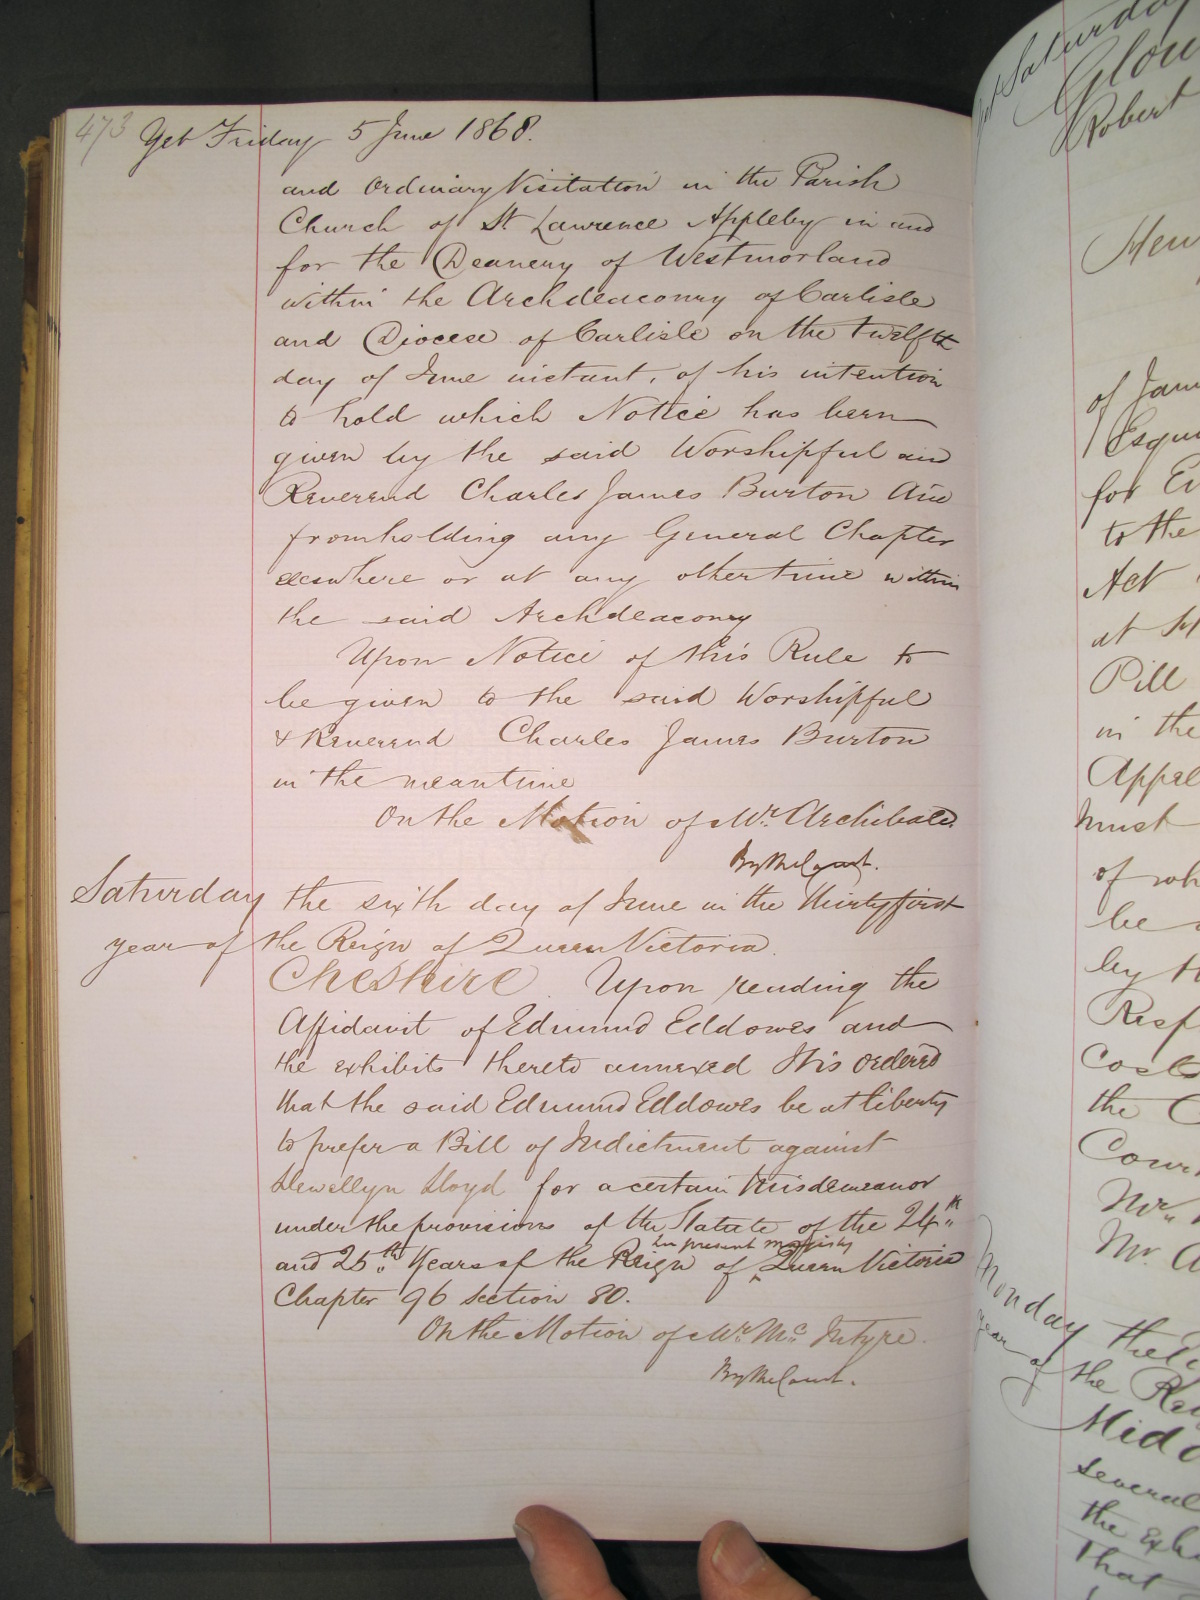 473 Yet Friday 5 June 1868.
and ordinary Visitation in the Parish
Church of St Lawrence Appleby in and
for the Deanery of Westmorland
within the Archdeaconry of Carlisle
and Diocese of Carlisle on the twelfth
day of June instant, of his intention
to hold which Notice has been
given by the said Worshipful and
Reverend Charles James Burton And
from holding any General Chapter
elsewhere or at any other time within
the said Archdeaconry
Upon Notice of this Rule to
be given to the said Worshipful
& Reverend Charles James Burton
in the meantime
On the Motion of Mr. Archibald.
By the Court.
Saturday the sixth day of June in the thirtyfirst
year of the Reign of Queen Victoria.
Cheshire. Upon reading the
Affidavit of Edmund Eddowes and
the exhibits thereto annexed It is ordered
that the said Edmund Eddowes be at liberty
to prefer a Bill of Indictment against
Llewellyn Lloyd for a certain Misdemeanor
under the provisions of the Statute of the 24th
her present majesty
and 25th Years of the Reign of Queen Victoria
Chapter 96 section 80.
On the Motion of Mr. Mc. Intyre.
By the Court.
Yet Saturday
Glou
Robert
of Jam
Esqui
for Er
to the
Act
at
Pill
in the
Appel
must
of wh
be
by
Resp
Costs
the
Cour
Mr.
Mr. A
Monday the
year of the Rei
Midd
several
the Exh
That